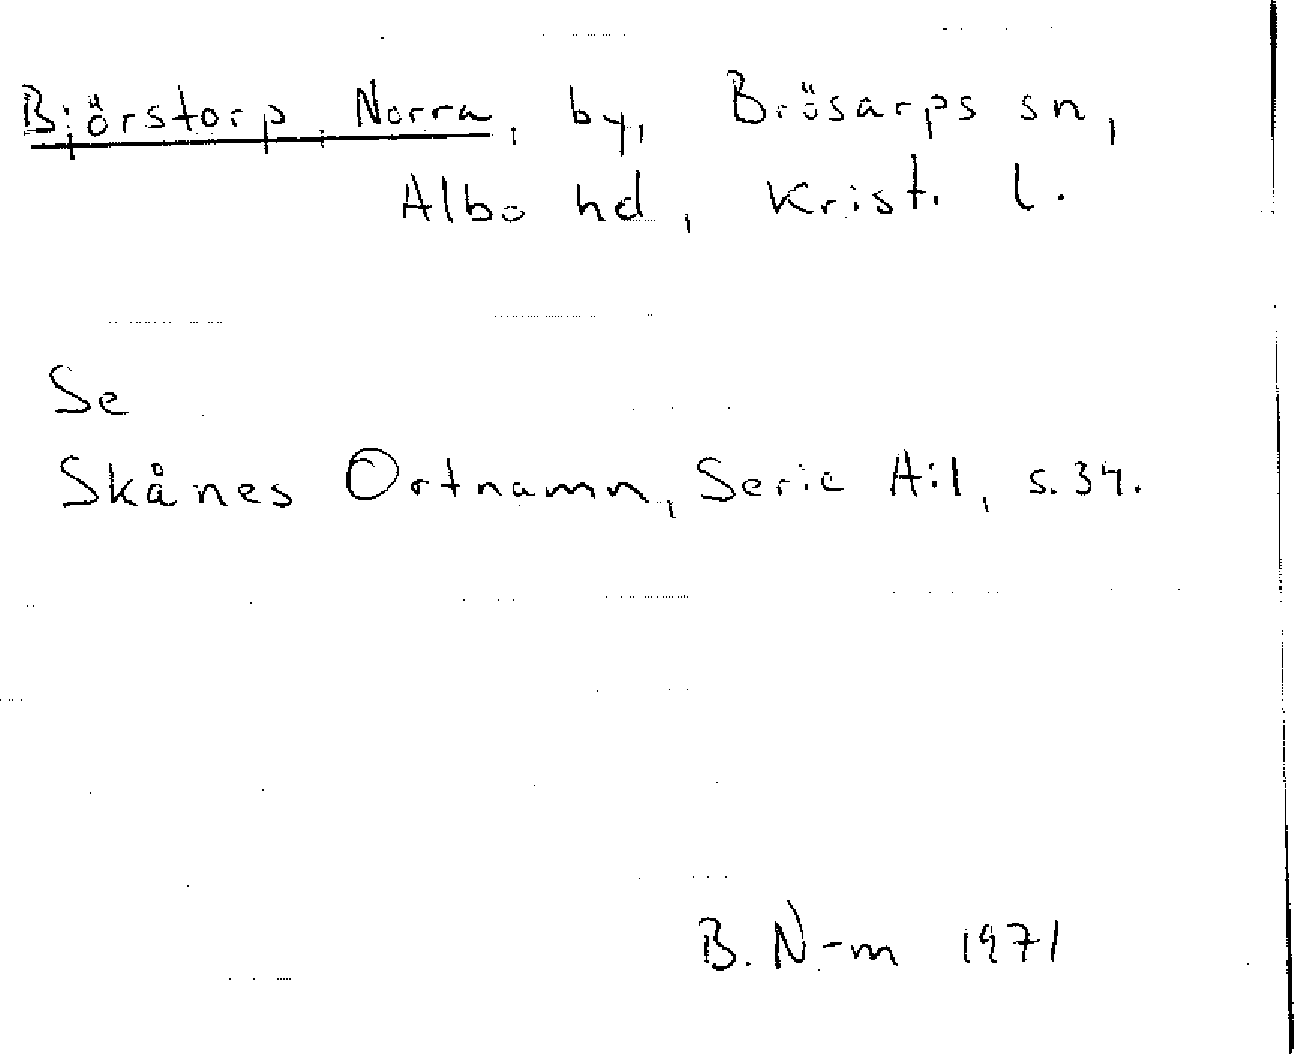 Björstorp, Norra, by, Brösarps sn,
Albo hd, Krist. l.
Se
Skånes Ortnamn, Serie A:1, s. 34.
B. N-m 1971